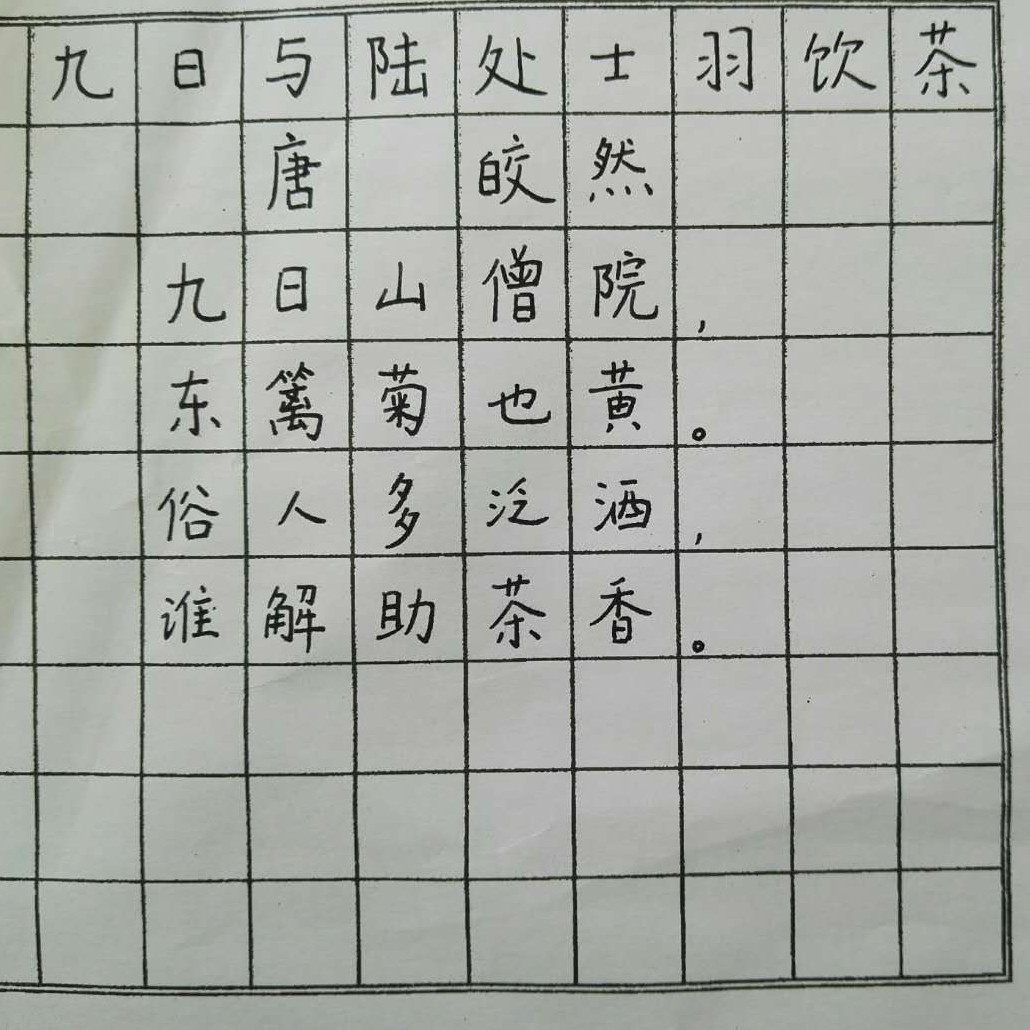 九日与陆处士羽饮茶
唐 皎然
九日山僧院，
东篱菊也黄。
俗人多泛酒，
谁解助茶香。